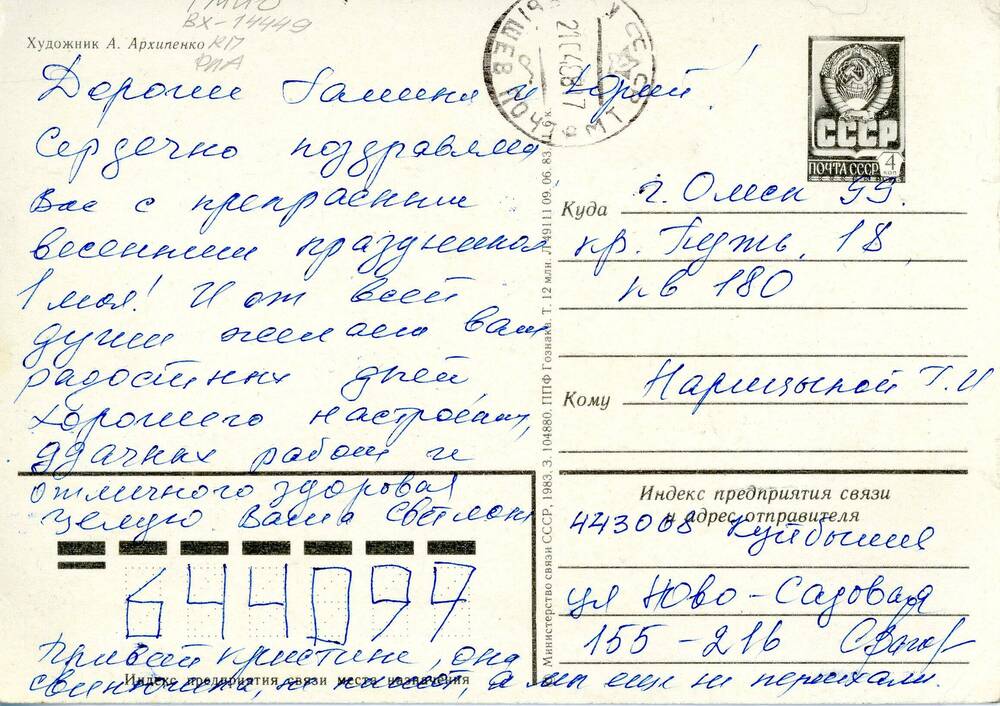 ВХ-14449
КП
Художник А. Архипенко
Дорогие Галина и Юрий!
Сердечно поздравляем
Вас с прекрасным
весенним праздником
1 мая! И от всей
души желаем вам
радостных дней
хорошего настроения,
удачных работ и
отличного здоровья
Целую Ваша Светлана
644099
Привет Кристине, она
свинюшка, не пишет, а мы еще не переехали.
Индекс предприятия связи места назначения
КУЙБЫШЕВ ПОЧТАМТ
СССР
ПОЧТА СССР 4 КОП
Министерство связи СССР, 1983. З. 104880. ППФ Гознака. Т. 12 млн. Л 49111 09. 06. 83.
Куда г. Омск 99.
18
кв 180
Кому Нарицыной Т. И
Индекс предприятия связи
и адрес отправителя
443008 Куйбышев
ул Ново-Садовая
155-216